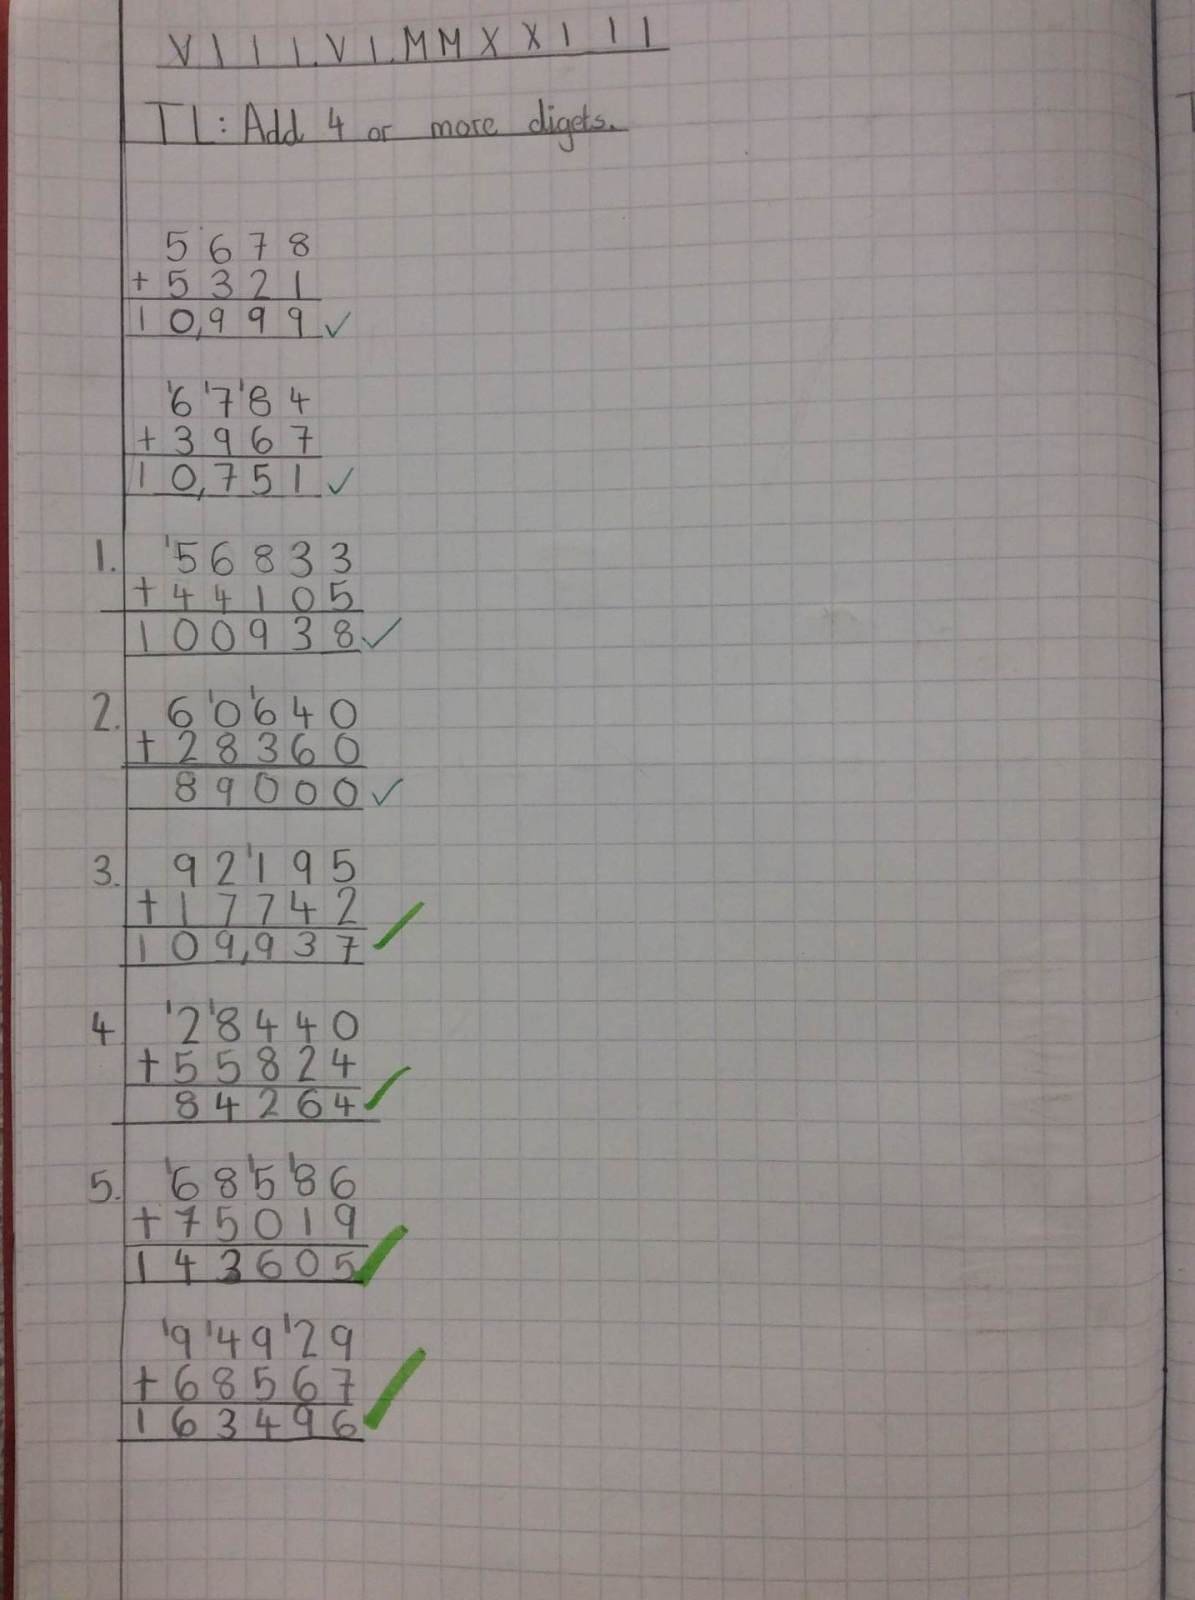 VIII.VI.MMXXIII
TL: Add 4 or more digets.
5 6 7 8
+ 5 3 2 1
1 0,9 9 9 ✓
'6 '7 '8 4
+ 3 9 6 7
1 0,7 5 1 ✓
1. '5 6 8 3 3
+ 4 4 1 0 5
1 0 0 9 3 8 ✓
2. 6 '0 '6 4 0
+ 2 8 3 6 0
8 9 0 0 0 ✓
3. 9 2 '1 9 5
+ 1 7 7 4 2
1 0 9,9 3 7 ✓
4 '2 '8 4 4 0
+ 5 5 8 2 4
8 4 2 6 4 ✓
5. '6 8 '5 '8 6
+ 7 5 0 1 9
1 4 3 6 0 5 ✓
'9 '4 9 '2 9
+ 6 8 5 6 7
1 6 3 4 9 6 ✓